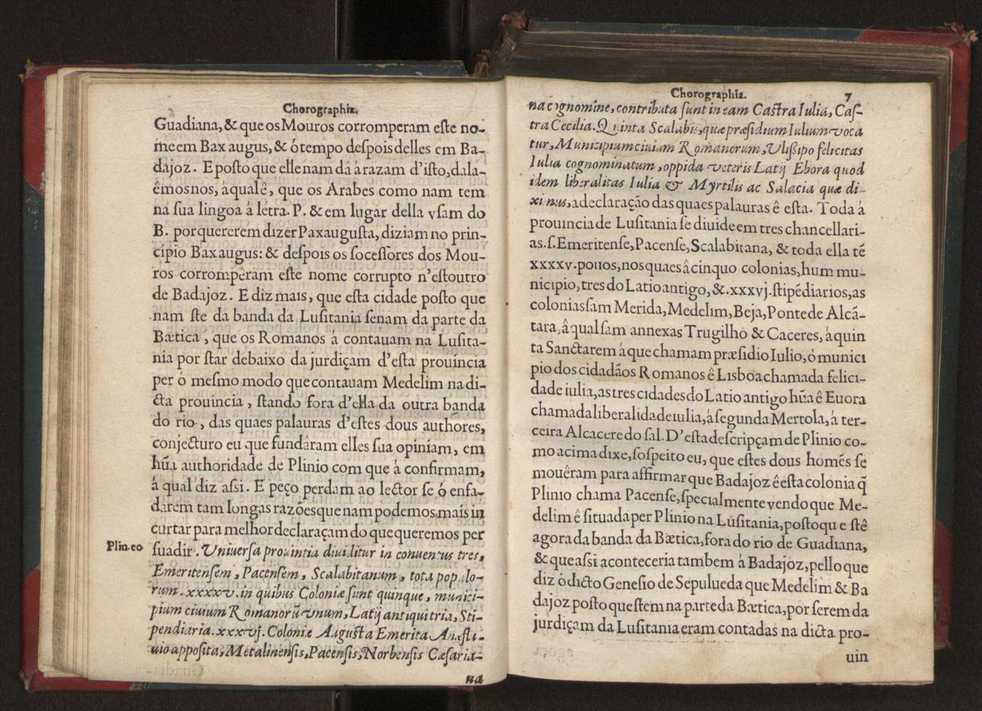 Chorographia.
Guadiana, & que os Mouros corromperam eſte no-
me em Bax augus, & ô tempo deſpois delles em Ba-
dajoz. E poſto que elle nam dâ â razam d'iſto, dala-
êmos nos, â qual ê, que os Arabes como nam tem
na ſua lingoa â letra. P. & em lugar della vſam do
B. por quererem dizer Paxauguſta, diziam no prin-
cipio Baxaugus: & deſpois os ſoceſſores dos Mou-
ros corromperam eſte nome corrupto n'eſtoutro
de Badajoz. E diz mais, que eſta cidade poſto que
nam ſte da banda da Luſitania ſenam da parte da
Bætica, que os Romanos â contauam na Luſita-
nia por ſtár debaixo da jurdiçam d'eſta prouincia
per ô meſmo modo que contauam Medelim na di-
cta prouincia, ſtando fora d'ella da outra banda
do rio, das quaes palauras d'eſtes dous authores,
conjecturo eu que fundaram elles ſua opiniam, em
hũa authoridade de Plinio com que â confirmam,
â qual diz aſsi. E peço perdam ao lector ſe ô enfa-
darem tam longas razões que nam podemos mais in
curtar para melhor declaraçam do que queremos per
Plin. eo
ſuadir. Vniuerſa prouintia diuiditur in conuentus tres,
Emeritenſem, Pacenſem, Scalabitanum, tota popylo-
rum. xxxxv. in quibus Coloniæ ſunt quinque, munici-
pium ciuium Romanorũ vnum, Latij antiqui tria, Sti-
pendiaria. xxxvj. Coloniæ Auguſta Emerita Anæ flu-
uio appoſita, Metalinenſis, Pacenſis, Norbenſis Cæſaria-
na
Chorographia. 7
na cognomine, contributa ſunt in eam Caſtra Iulia, Caſ-
tra Cecilia. Quinta Scalabis, quæ præſidium Iulium voca
tur, Municipium ciuium Romanorum, Vliſsipo felicitas
Iulia cognominatum, oppida veteris Latij Ebora quod
idem liberalitas Iulia & Myrtilis ac Salacia quæ di-
ximus, a declaração das quaes palauras ê eſta. Toda â
prouincia de Luſitania ſe diuide em tres chancellari-
as. ſ. Emeritenſe, Pacenſe, Scalabitana, & toda ella tẽ
xxxxv. pouos, nos quaes â cinquo colonias, hum mu-
nicipio, tres do Latio antigo, &. xxxvj. ſtipẽdiarios, as
colonias ſam Merida, Medelim, Beja, Ponte de Alcã-
tara, â qual ſam annexas Trugilho & Caceres, â quin
ta Sanctarem â que chamam præſidio Iulio, ô munici
pio dos cidadãos Romanos ê Lisboa chamada felici-
dade iulia, as tres cidades do Latio antigo hũa ê Euora
chamada liberalidade iulia, â ſegunda Mertola, â ter-
ceira Alcacere do ſal. D'eſta deſcripçam de Plinio co-
mo acima dixe, ſoſpeito eu, que eſtes dous homẽs ſe
mouêram para affirmar que Badajoz ê eſta colonia q̃
Plinio chama Pacenſe, ſpecialmente vendo que Me-
delim ê ſituada per Plinio na Luſitania, poſto qu e ſtê
agora da banda da Bætica, fora do rio de Guadiana,
& que aſsi aconteceria tambem â Badajoz, pello que
diz ô dicto Geneſio de Sepulueda que Medelim & Ba
dajoz poſto que ſtem na parte da Bætica, por ſerem da
jurdiçam da Luſitania eram contadas na dicta pro-
uin